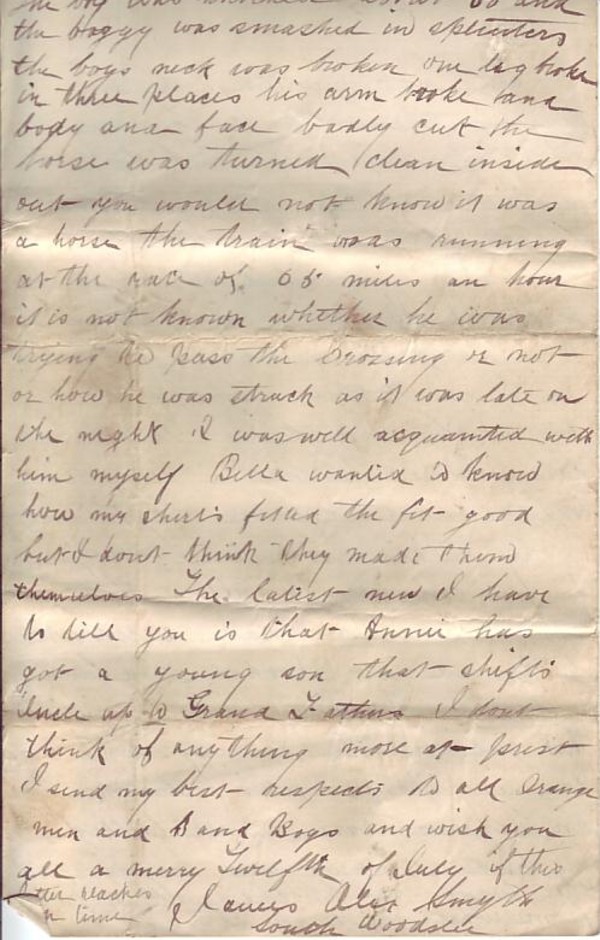 the boy was
the buggy was smashed in splinters
the boys neck was broken one leg broke
in three places his arm broke and
body and face badly cut the
horse was turned clean inside
out you would not know it was
a horse the train was running
at the rate of 65 miles an hour
it is not known whether he was
trying to pass the Crossing or not
or how he was struck as it was late on
the night I was well acquainted with
him myself Bella wanted to know
how my shirts fitted the fit good
but I dont think they made them
themselves The latest new I have
to tell you is that Annie has
got a young son that shifts
Uncle up to Grand Fathers I dont
think of anything more at prest
I send my best respects to all Orange
men and Band Boys and wish you
all a merry Twelfth of July if this
letter reaches
in time
James Alex Smyth
South Woodslee